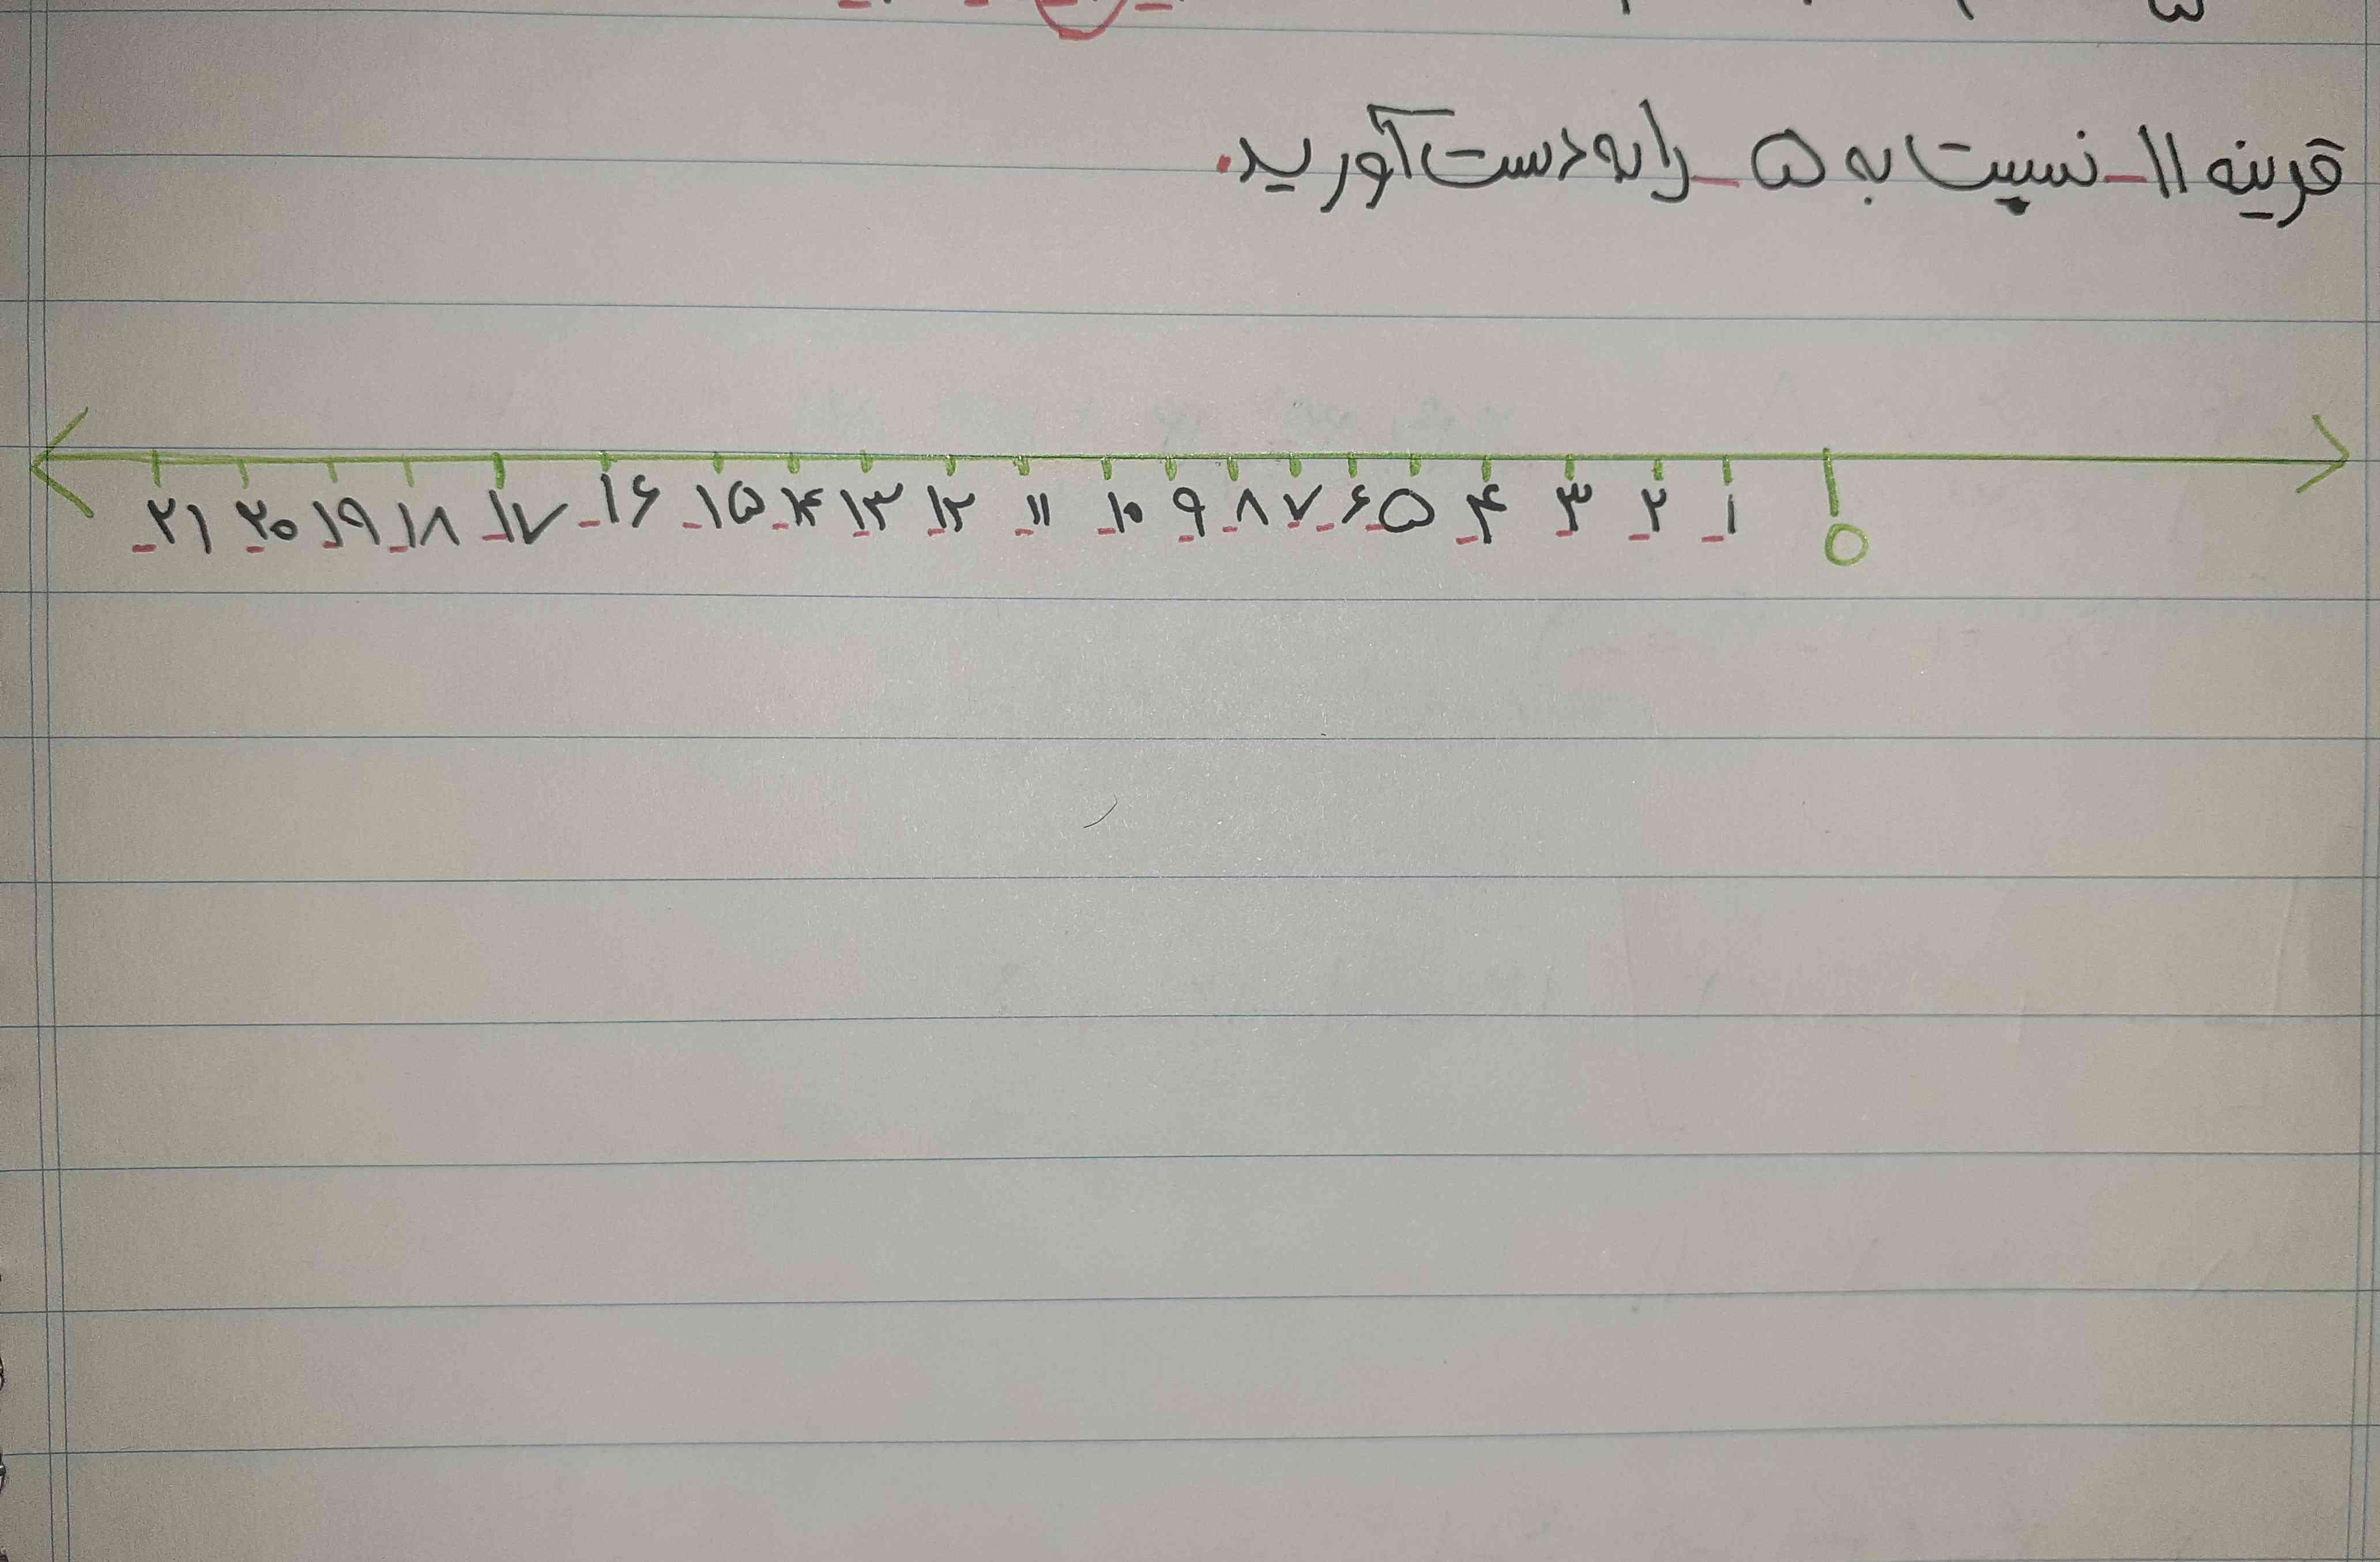 قرینه ۱۱- نسبت به ۵- را به دست آورید.
-۲۱ -۲۰ -۱۹ -۱۸ -۱۷ -۱۶ -۱۵ -۱۴ -۱۳ -۱۲ -۱۱ -۱۰ -۹ -۸ -۷ -۶ -۵ -۴ -۳ -۲ -۱ ۰